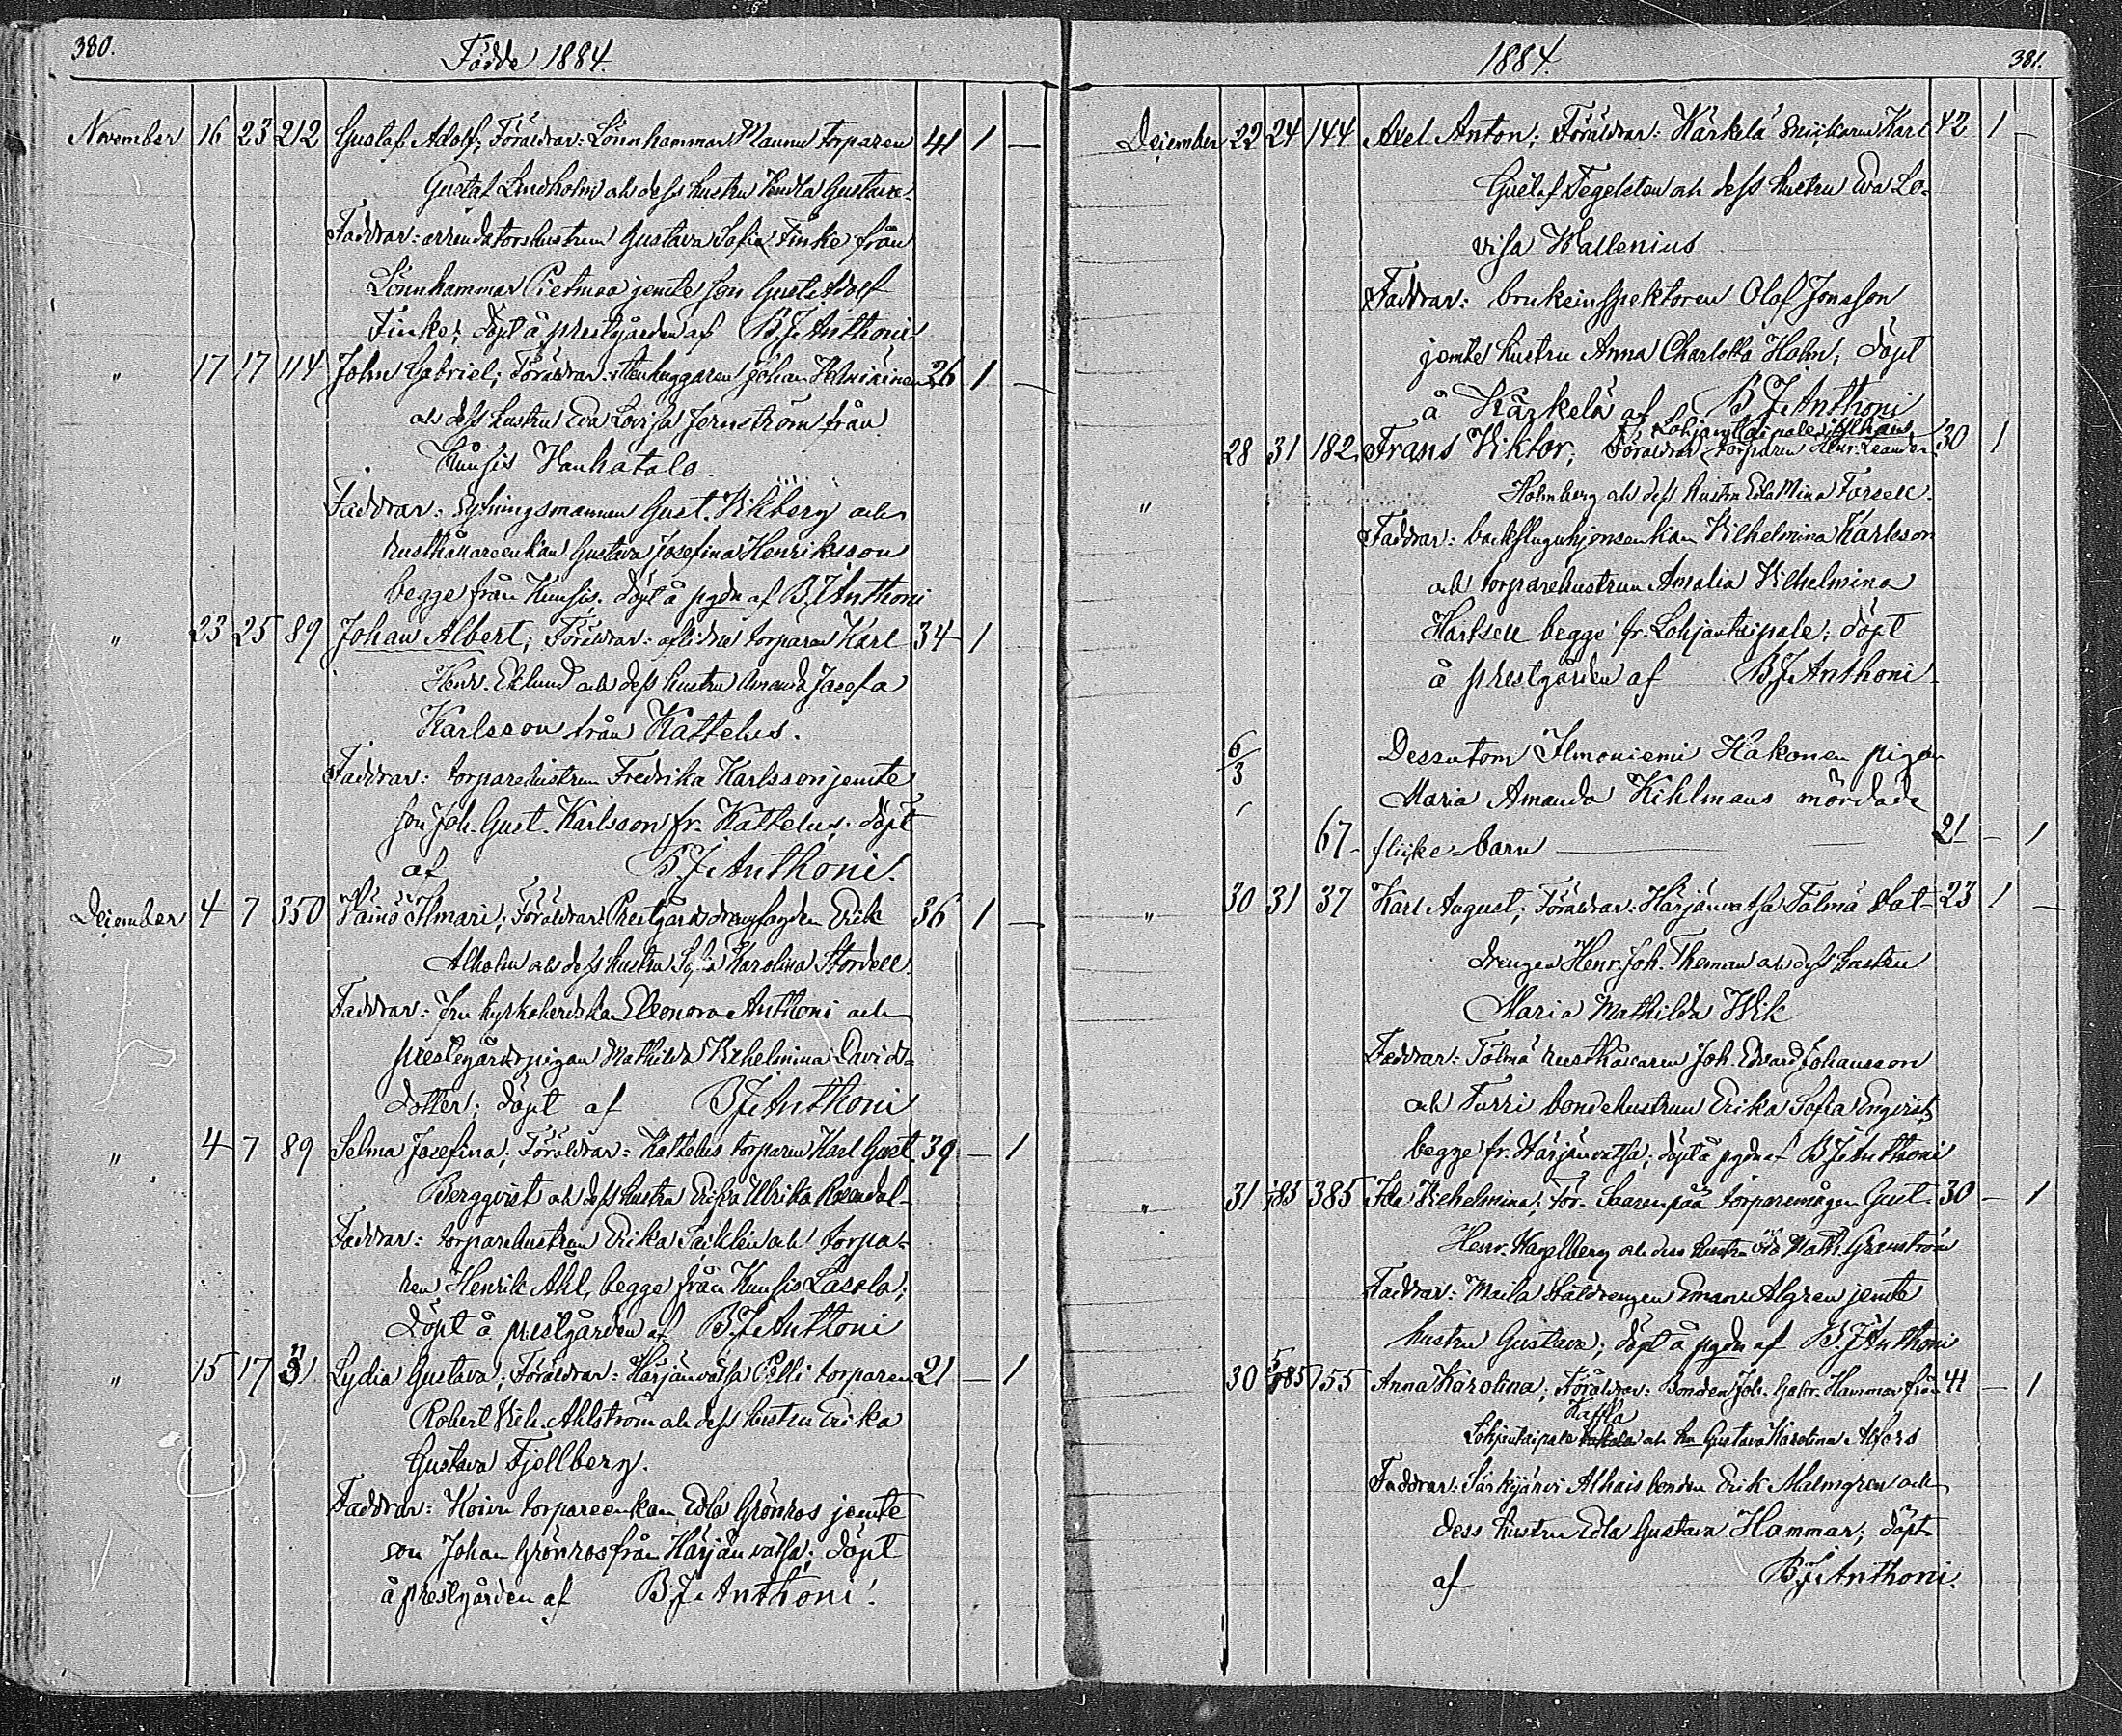 380.
Födde 1884.
November 16 23 212 Gustaf Adolf; Föräldrar: Lönnhammar Maunu torparen 41 1 —
Gustaf Lindholm och dess hustru Hendla Gustava.
Faddrar: arrendatorshustrun Gustava Sofia Finke från
Lönnhammar Pietmaa jemte son Gust. Adolf
Finke; döpt å prestgården af B. J. Anthoni
" 17 17 114 John Gabriel; Föräldrar: stenhuggaren Johan 26 1 —
och dess hustru Eva Lovisa Jernström från
Kuusis Vanhatalo.
Faddrar: Gust. Vikberg och
rusthållareenkan Gustava Josefina Henriksson
begge från Kuusis; döpt å pgdn af B. J. Anthoni
" 23 25 89 Johan Albert; Föräldrar: aflidne torparen Karl 34 1
Henr. Eklund och dess hustru Amanda Josefa
Karlsson från Kattelus.
Faddrar: torparehustrun Fredrika Karlsson jemte
son Joh. Gust. Karlsson fr. Kattelus; döpt
af B. J. Anthoni.
December 4 7 350 Väinö Ilmari; Föräldrar: Prestgårds drengfogden Erik 36 1 —
Alholm och dess hustru Sofia Karolina Stordell.
Faddrar: fru kyrkoherdska Eleonora Anthoni och
prestegårdspigan Mathilda Vilhelmina David-
dotter; döpt af B. J. Anthoni
" 4 7 89 Selma Josefina; Föräldrar: Kattelus torparen Karl Gust. 39 — 1
Bergqvist och dess hustru Erika Ulrika Rosendal.
Faddrar: torparehustrun Erika och torpa-
ren Henrik Ahl, begge från Kuusis Lassla;
döpt å prestgården af B. J. Anthoni
" 15 17 31 Lydia Gustava; Föräldrar: Härjänvatsa Pelli torparen 21 — 1
Robert Vilh. Ahlström och dess hustru Erika
Gustava Fjellberg.
Faddrar: Koivu torpareenkan Edla Grönros jemte
son Johan Grönros från Härjänvatsa; döpt
å prestgården af B. J. Anthoni.
1884.
381.
December 22 24 144 Axel Anton; Föräldrar: Kärkelä Karl 42 1 —
Gustaf Tegelsten och dess hustru Eva Lo-
visa Wallenius
Faddrar: bruksinspektoren Olof Jonsson
jemte hustru Anna Charlotta Holm; döpt
å Kärkelä af B. J. Anthoni
Lohjantaipale Alhais
" 28 31 182 Frans Viktor; Föräldrar: torparen Henr. Leander 30 1
Holmberg och dess hustru Eda Mina Forsell.
Faddrar: backstuguhjonsenkan Vilhelmina Karlsson
och torparehustrun Amalia Vilhelmina
Karlsell begge fr. Lohjantaipale; döpt
å prestgården af B. J. Anthoni
6/3 Dessutom Ilmoniemi Hakonen pigan
Maria Amanda Kihlmans mördade
67 flicke-barn 21 — 1
" 30 31 37 Karl August; Föräldrar: Härjänvatsa Tolmä stat- 23 1 —
drengen Henr. Joh. Theman och dess hustru
Maria Mathilda Wik
Faddrar: Tolmä rusthållaren Joh. Edvard Johansson
och Turri bondehustrun Erika Sofia Engvist,
begge fr. Härjänvatsa; döpt å pgdn af B. J. Anthoni
" 31 1/85 385 Ida Vilhelmina; För. Saarenpää torparemågen Gust. 30 — 1
Henr. Hagelberg och dess hustru Ida Math. Granström
Faddrar: Maila statdrengen Emanu. Algren jemte
hustru Gustava; döpt å pgdn af B. J. Anthoni
30 5/1 85 155 Anna Karolina; Föräldrar: Bonden Joh. Gabr. Hammar från 41 — 1
Kaffla
Lohjantaipale och hu Gustava Karolina Alfors
Faddrar: Särkijärvi Alhais bonden Erik Malmgren och
dess hustru Edla Gustava Hammar; döpt
af B. J. Anthoni.